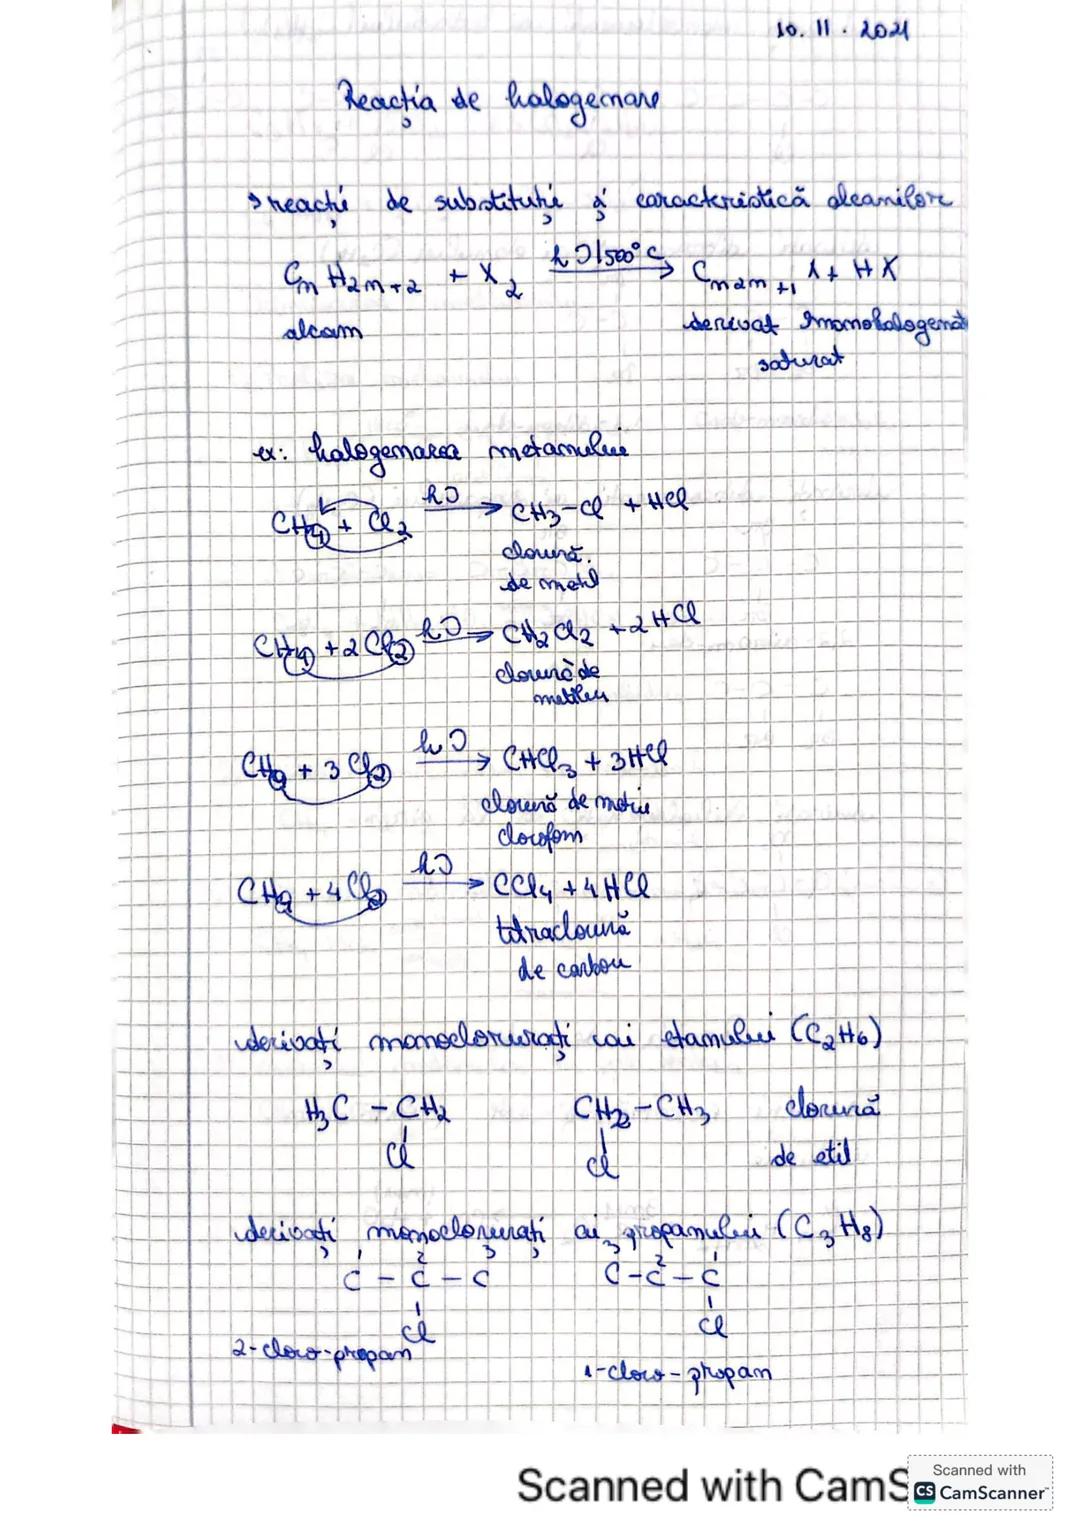 10. 11. 2021
Reacția de halogenare
→ reacții de substituție și caracteristică alcanilor
CnH2n+2 + X2 hν/500°C → Cn2n+1 X + HX
alcan derivat monohalogenat
saturat
ex: halogenarea metanului
CH4 + Cl2 hν → CH3-Cl + HCl
clorură
de metil
CH4 + 2Cl2 hν → CH2Cl2 + 2HCl
clorură de
metilen
CH4 + 3Cl2 hν → CHCl3 + 3HCl
clorură de metin
clorofom
CH4 + 4Cl2 hν → CCl4 + 4HCl
tetraclorură
de carbon
derivați monoclorurați ai etanului (C2H6)
H3C - CH2 CH2 - CH3 clorură
Cl Cl de etil
derivați monoclorurați ai propanului (C3H8)
1 2 3 3 2 1
C - C - C C - C - C
Cl Cl
2-cloro-propan
1-cloro-propan
Scanned with CamS
Scanned with
CS CamScanner